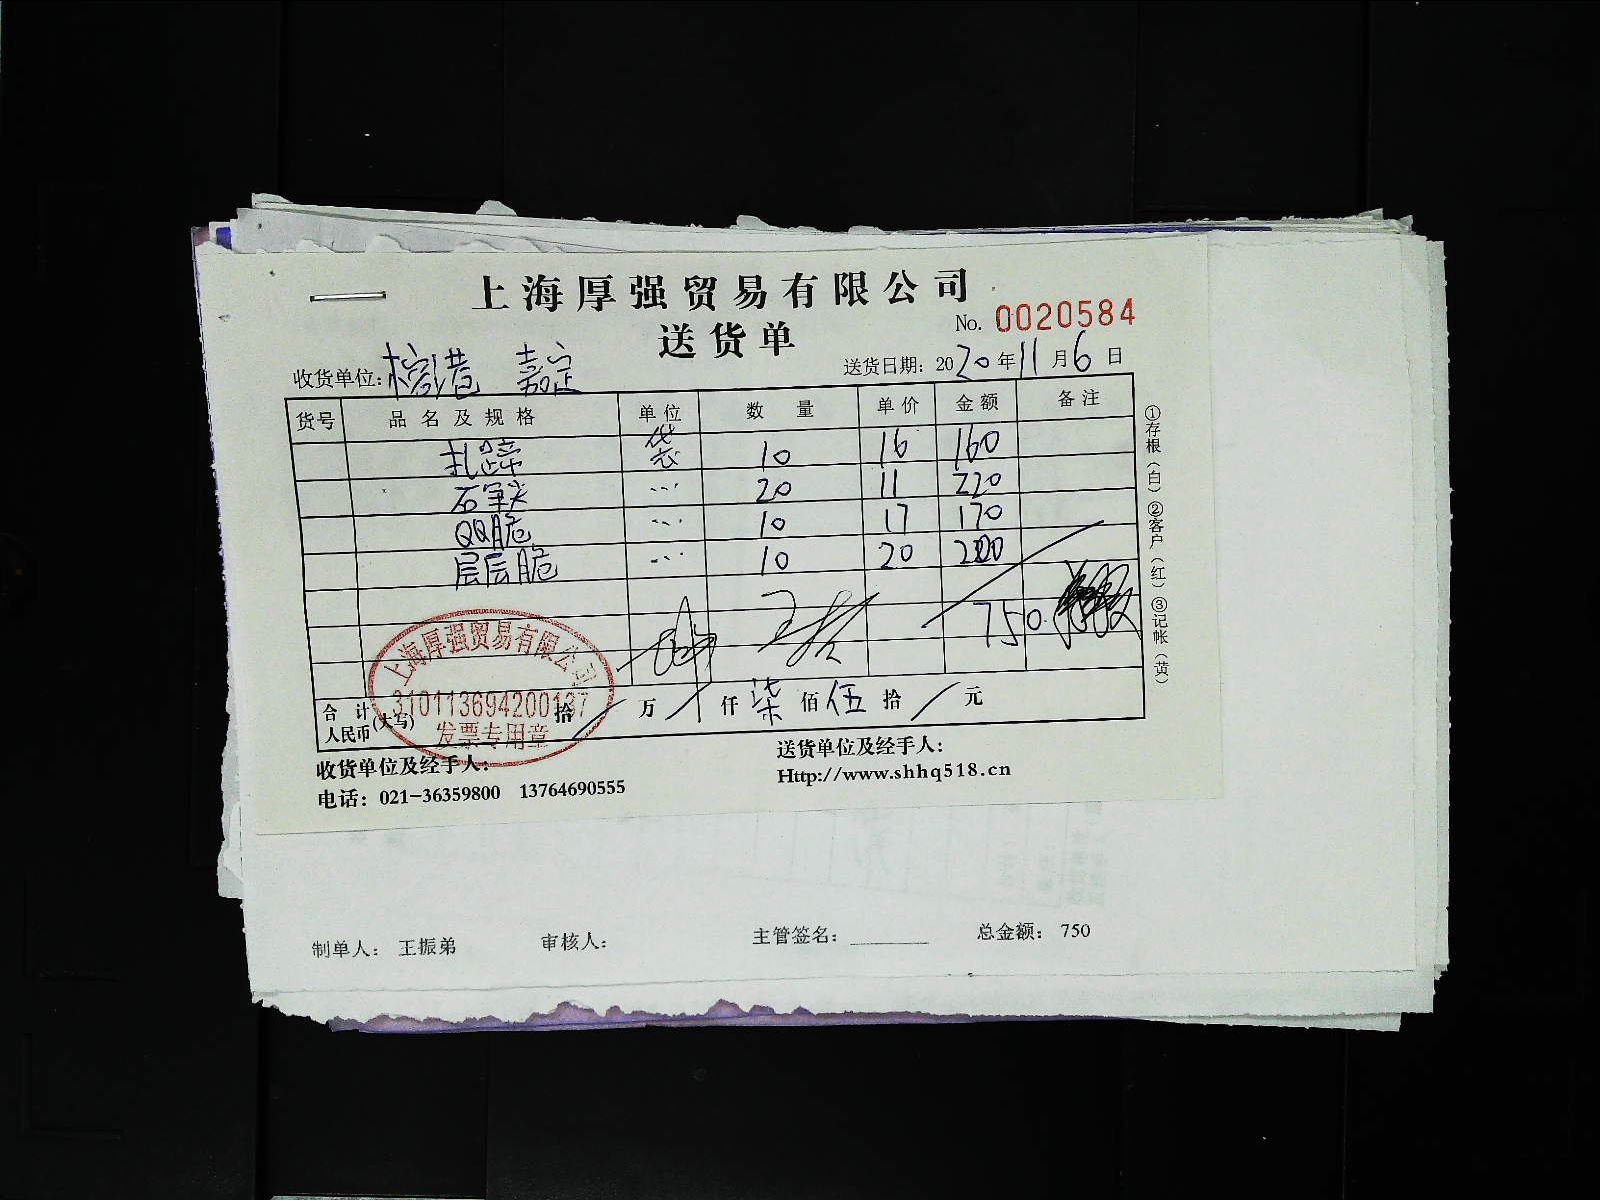 上海厚强贸易有限公司
送货单
No. 0020584
收货单位: 榕港 嘉定
送货日期: 2020年11月6日
货号 品名及规格 单位 数量 单价 金额 备注
扎蹄 袋 10 16 160
石锅 ... 20 11 220
QQ脆 ... 10 17 170
层层脆 ... 10 20 200
750.
上海厚强贸易有限公司
310113694200137
发票专用章
合计
人民币(大写) 拾 / 万 / 仟 柒 佰 伍 拾 / 元
收货单位及经手人:
送货单位及经手人:
电话: 021-36359800 13764690555
Http://www.shhq518.cn
①存根(白)②客户(红)③记帐(黄)
制单人: 王振弟 审核人: 主管签名: 总金额: 750